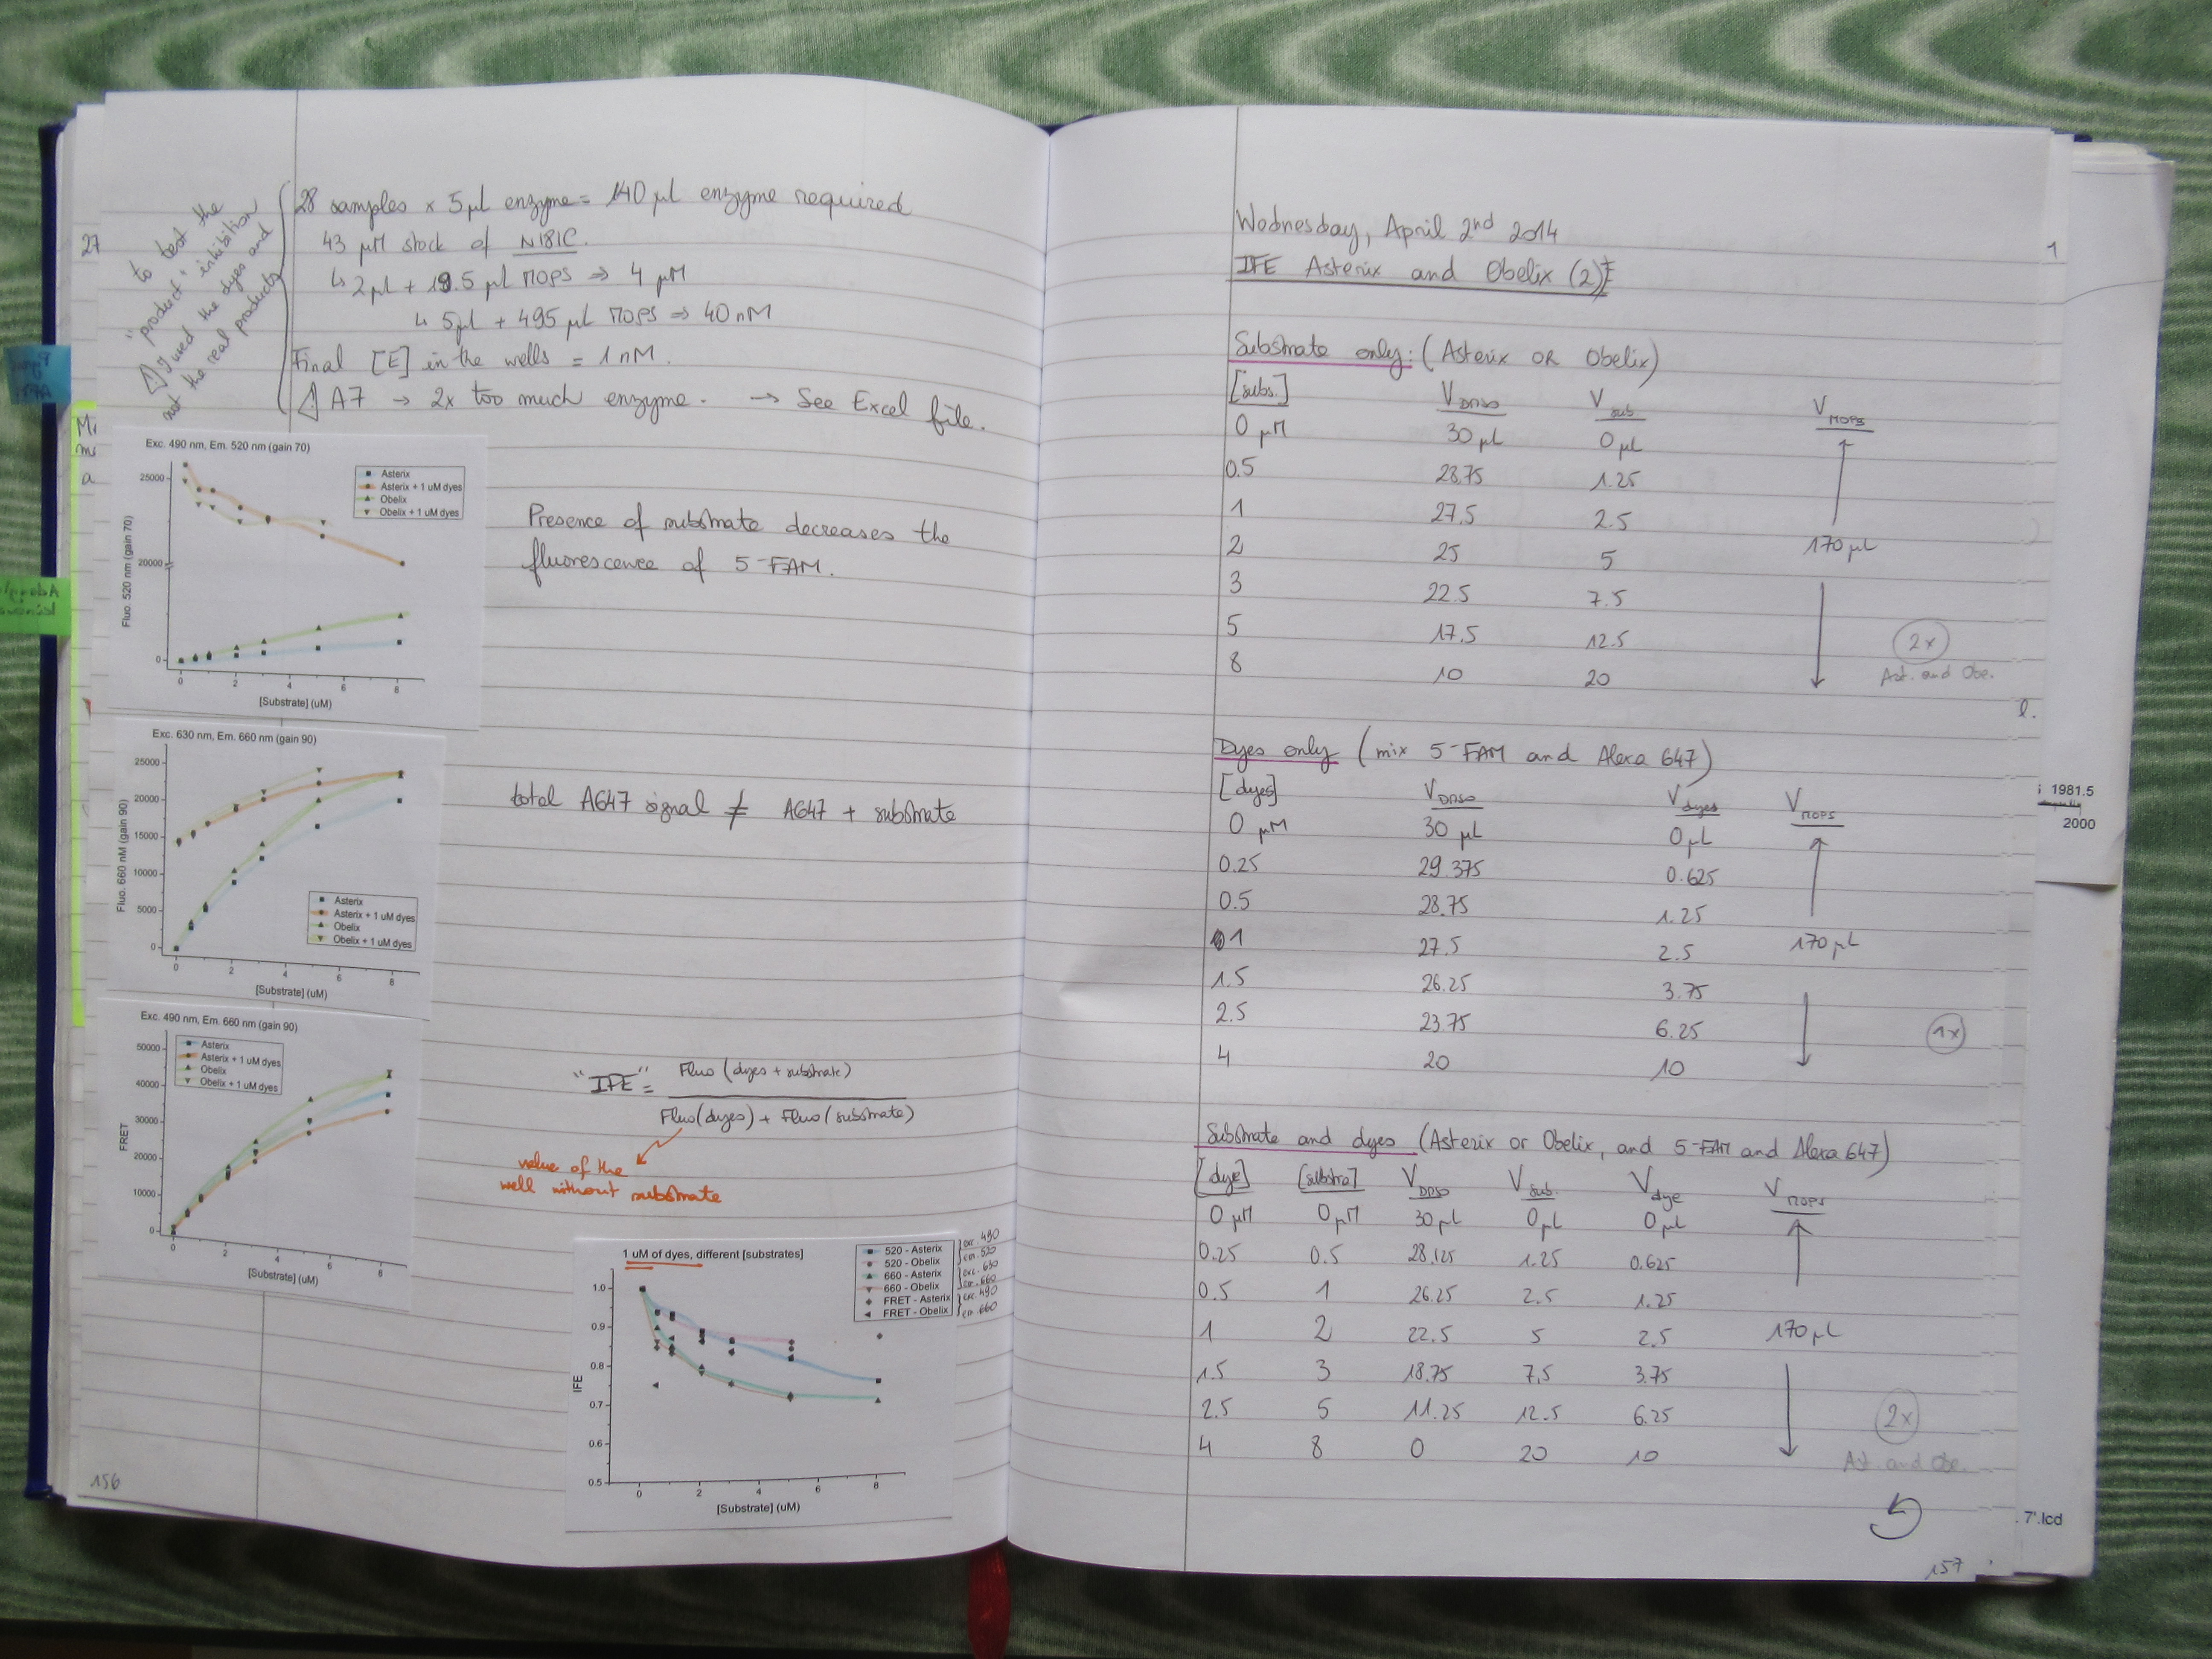 27
to test the
"product" inhibition
⚠ I used the dyes and
not the real products
28 samples x 5 µl enzyme = 140 µl enzyme required
43 µM stock of N181C.
↳ 2 µl + 19.5 µl MOPS ⇒ 4 µM
↳ 5 µl + 495 µl MOPS ⇒ 40 nM
Final [E] in the wells = 1 nM.
⚠ A7 → 2x too much enzyme. → See Excel file.
Exc. 490 nm, Em. 520 nm (gain 70)
Asterix
Asterix + 1 uM dyes
Obelix
Obelix + 1 uM dyes
25000
20000
0
Fluo. 520 nm (gain 70)
0 2 4 6 8
[Substrate] (uM)
Presence of substrate decreases the
fluorescence of 5-FAM.
Exc. 630 nm, Em. 660 nm (gain 90)
25000
20000
15000
10000
5000
0
Fluo. 660 nM (gain 90)
Asterix
Asterix + 1 uM dyes
Obelix
Obelix + 1 uM dyes
0 2 4 6 8
[Substrate] (uM)
total A647 signal ≠ A647 + substrate
Exc. 490 nm, Em. 660 nm (gain 90)
Asterix
Asterix + 1 uM dyes
Obelix
Obelix + 1 uM dyes
50000
40000
30000
20000
10000
0
FRET
0 2 4 6 8
[Substrate] (uM)
"IFE" = Fluo (dyes + substrate)
Fluo (dyes) + Fluo (substrate)
value of the
well without substrate
1 uM of dyes, different [substrates]
520 - Asterix exc. 490
520 - Obelix em. 520
660 - Asterix exc. 630
660 - Obelix em. 660
FRET - Asterix exc. 490
FRET - Obelix em. 660
1.0
0.9
0.8
0.7
0.6
0.5
IFE
0 2 4 6 8
[Substrate] (uM)
156
Wednesday, April 2nd 2014
IFE Asterix and Obelix (2)
Substrate only: (Asterix OR Obelix)
[subs.] V DMSO V sub V MOPS
0 µM 30 µL 0 µL
0.5 28.75 1.25
1 27.5 2.5
2 25 5 170 µL
3 22.5 7.5
5 17.5 12.5 2x
8 10 20 Ast. and Obe.
Dyes only (mix 5-FAM and Alexa 647)
[dyes] V DMSO V dyes V MOPS
0 µM 30 µL 0 µL
0.25 29.375 0.625
0.5 28.75 1.25
1 27.5 2.5 170 µL
1.5 26.25 3.75
2.5 23.75 6.25 1x
4 20 10
Substrate and dyes (Asterix or Obelix, and 5-FAM and Alexa 647)
[dye] [substra] V DMSO V sub. V dye V MOPS
0 µM 0 µM 30 µL 0 µL 0 µL
0.25 0.5 28.125 1.25 0.625
0.5 1 26.25 2.5 1.25
1 2 22.5 5 2.5 170 µL
1.5 3 18.75 7.5 3.75
2.5 5 11.25 12.5 6.25 2x
4 8 0 20 10 Ast. and Obe.
157
1981.5
2000
7'.lcd